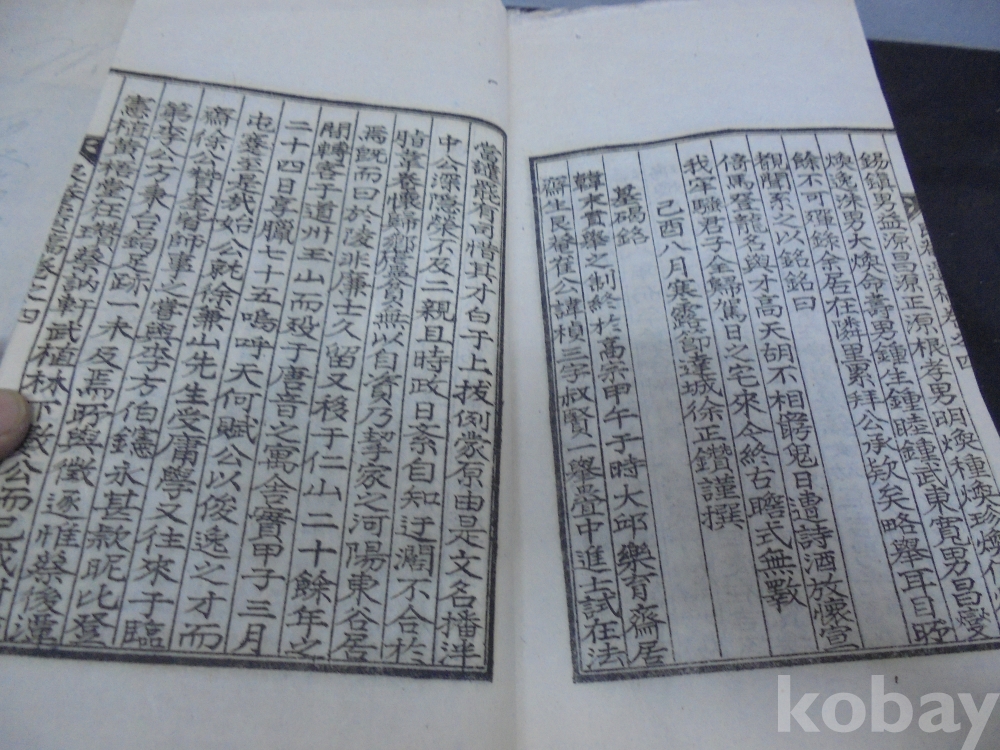 錫鎮男益源昌源正源根孝男明煥種煥珍煥
煥逸淙男大煥命壽男鍾生鍾睦鍾武東寬男昌燮
餘不可殫錄余居在隣里累拜公承欵矣略舉耳目所
覩聞系之以銘銘曰
倚馬登龍名與才高天胡不相 鬼日漕詩酒放懷
我牢騷君子全歸篤日之宅來今終古瞻式無斁
己酉八月寒露節達城徐正鑽謹撰
墓碣銘
韓末賞舉之制終於高宗甲午于時大邱樂育齋居
齋生艮菴崔公諱楨三字叔賢一舉疊中進士試在法
當讙罷有司惜其才白于上拔例蒙原由是文名播泮
中公深隱榮不及二親且時政日紊自知迂濶不合於
時摹養懷歸鄉廬貧無以自資乃挈家之河陽東谷居
焉旣而曰於陵非廉士久留又移于仁山二十餘年之
間轉客于道州玉山而歿于唐音之寓舍實甲子三月
二十四日享臘七十五嗚呼天何賦公以俊逸之才而
屯蹇至是哉始公就徐兼山先生受庸學又往來于臨
齋徐公贊奎皆師事之嘗與李方伯鑢永甚款昵比登
第李公方秉台鈞足跡一未及焉所與徵逐惟蔡後潭
憲植黃梧堂在瓚蔡訥軒武植林下數公而已
之四
卷之四
kobay